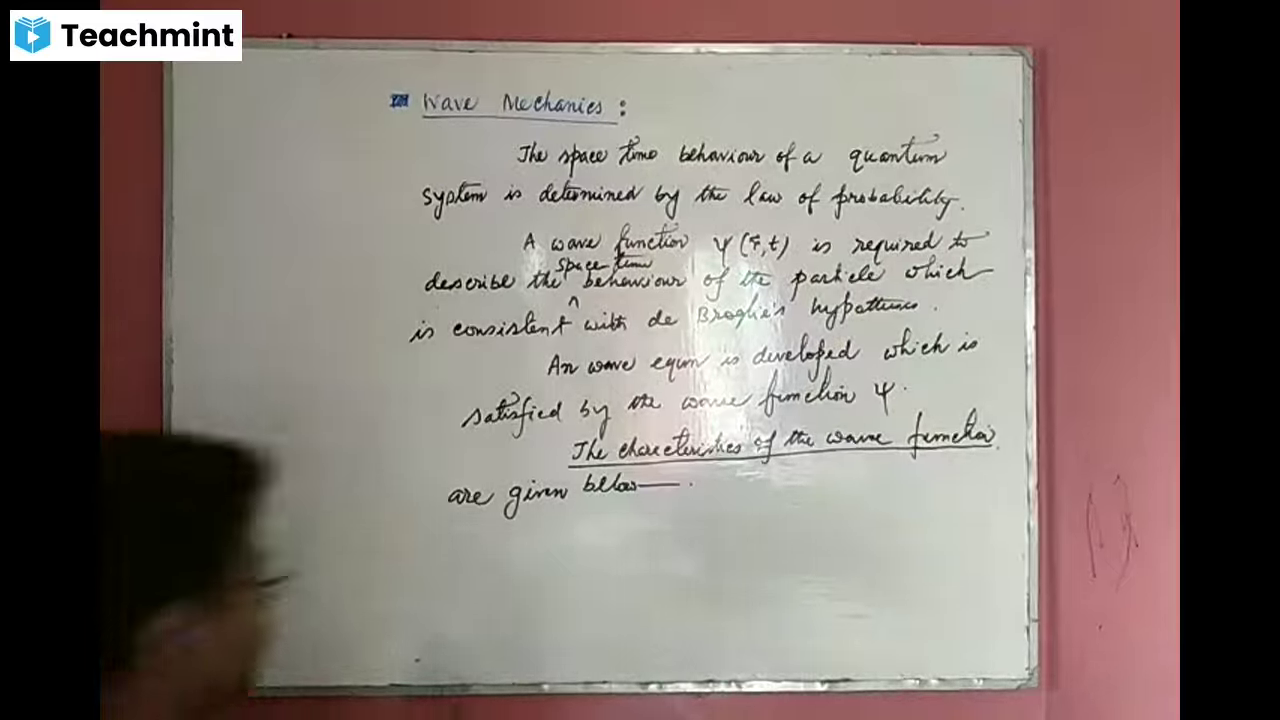 Teachmint
Wave Mechanics :
The space time behaviour of a quantum
system is determined by the law of probability.
A wave function ψ (r⃗, t) is required to
space time
describe the ^ behaviour of the particle which
is consistent with de Broglie's hypothesis.
An wave equn is developed which is
satisfied by the wave function ψ.
The characteristics of the wave function
are given below — .